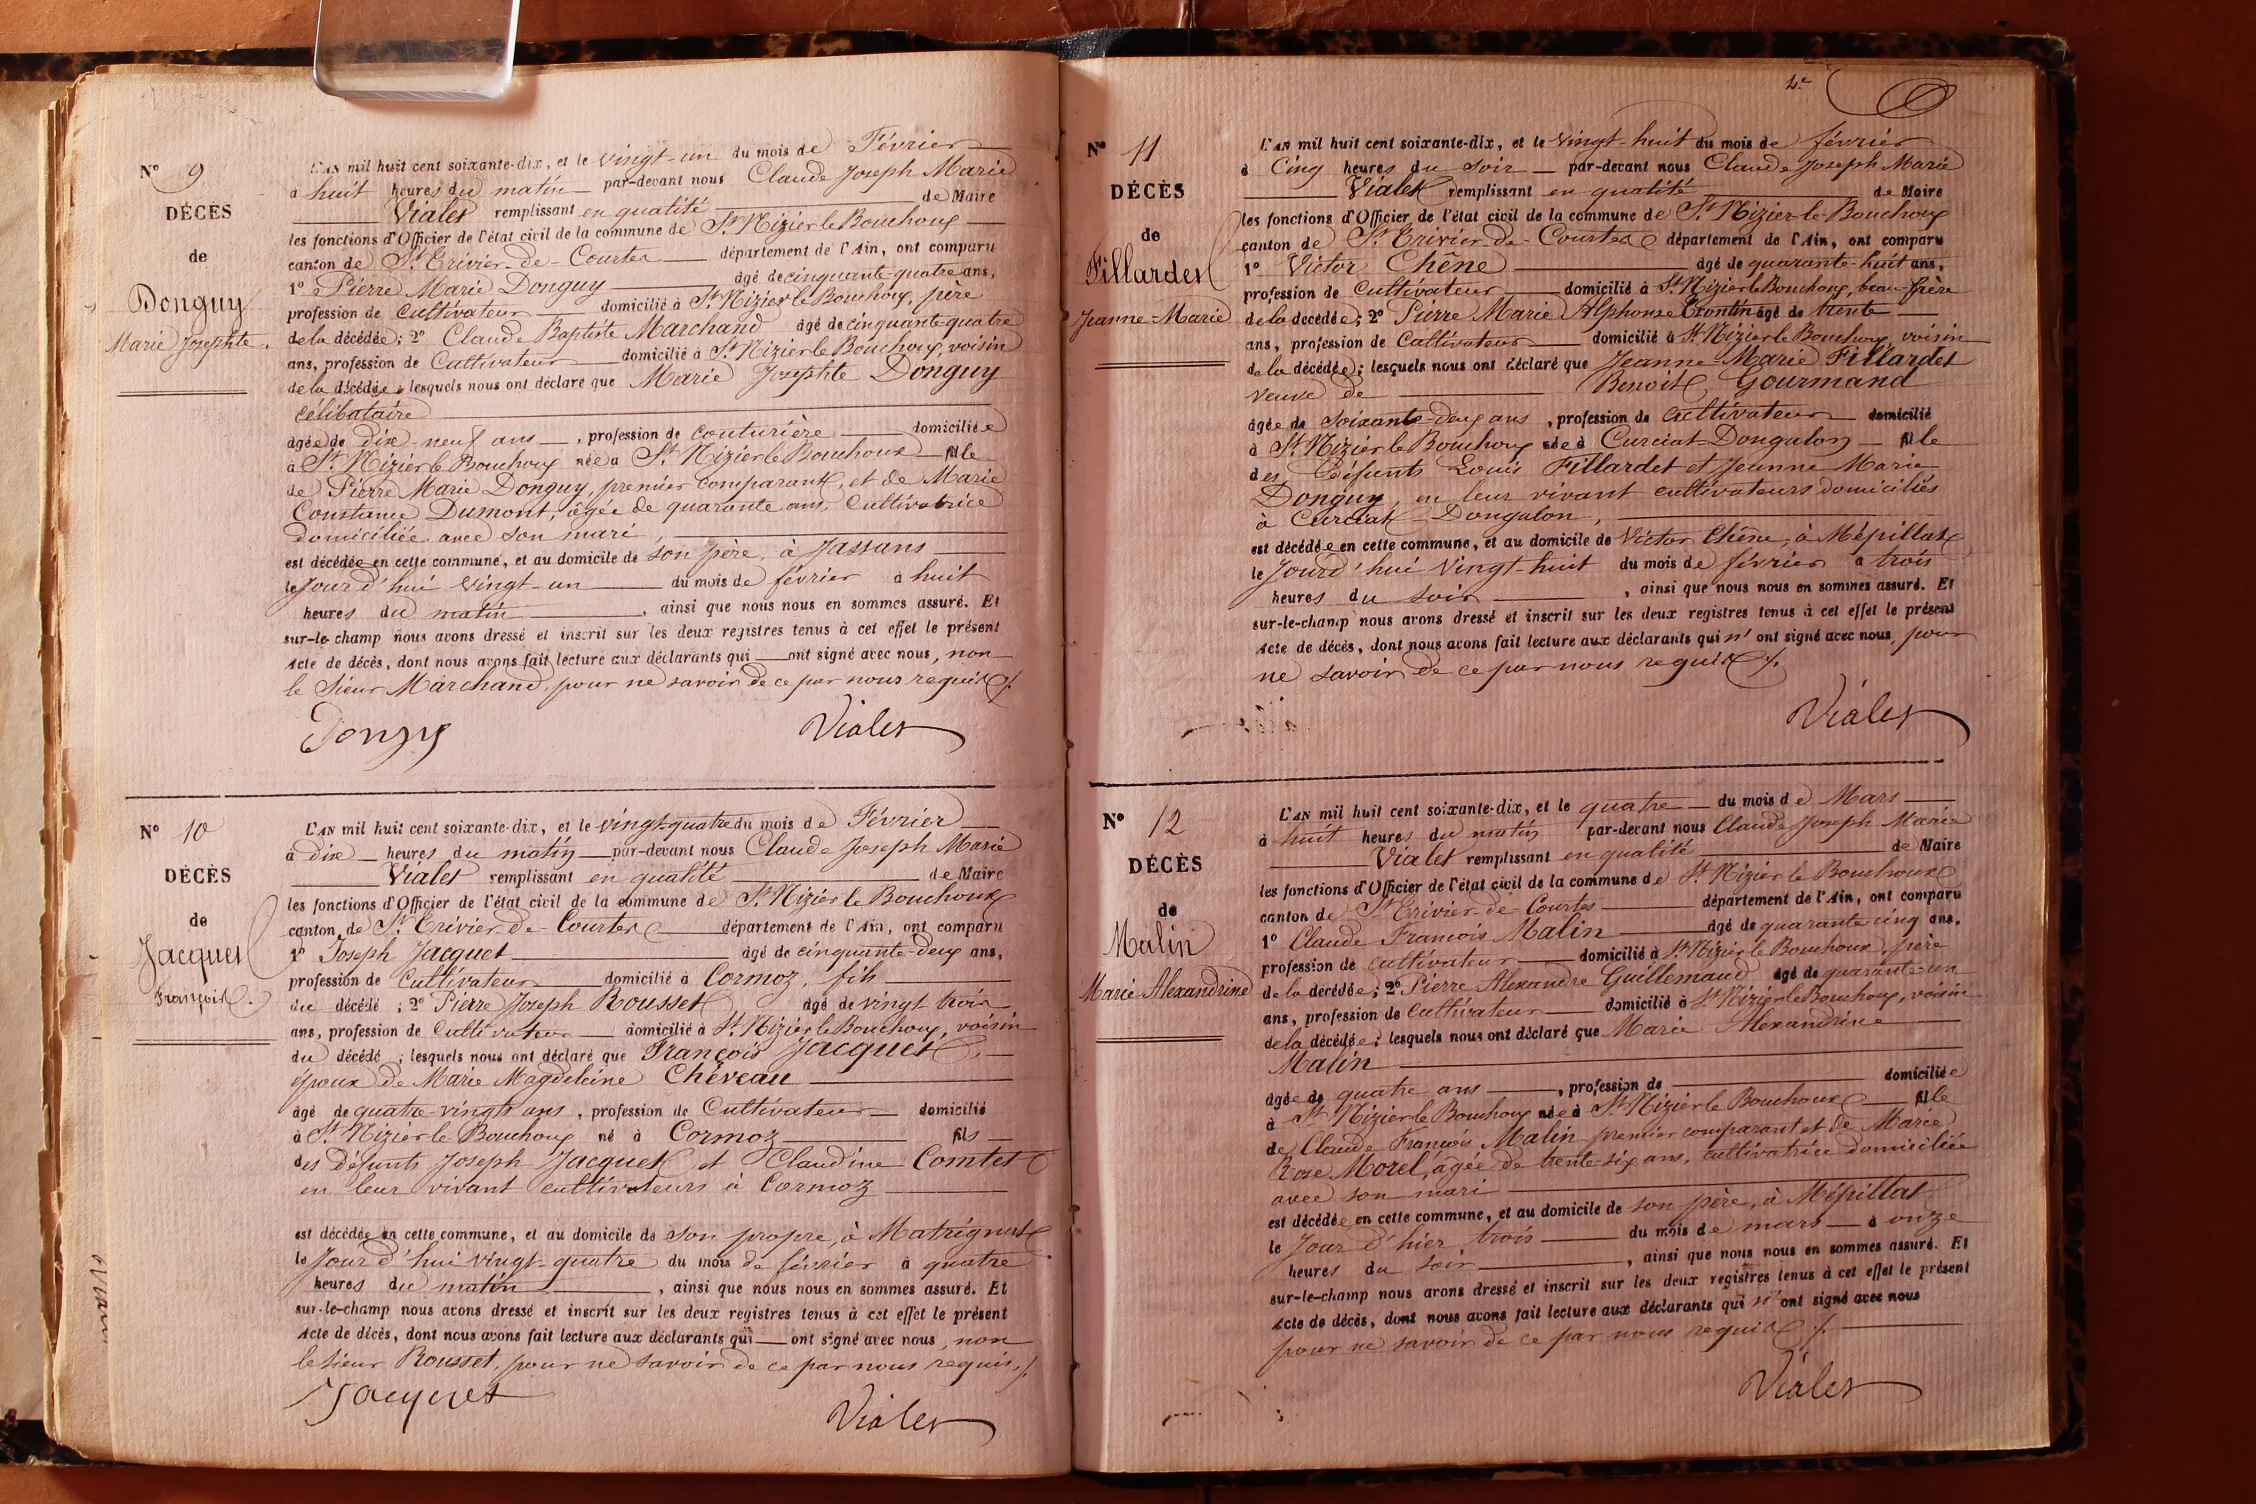 N° 9
DÉCÈS
de
Donguy
Marie Josephte.
L'AN mil huit cent soixante-dix, et le vingt-un du mois de Février
à huit heures du matin par-devant nous Claude Joseph Marie
Vialet remplissant en qualité de Maire
les fonctions d'Officier de l'état civil de la commune de St Nizier le Bouchoux
canton de St Trivier-de-Courtes département de l'Ain, ont comparu
1° Pierre Marie Donguy âgé de cinquante-quatre ans,
profession de cultivateur domicilié à St Nizier le Bouchoux, père
de la décédée; 2° Claude Baptiste Marchand âgé de cinquante-quatre
ans, profession de Cultivateur domicilié à St Nizier le Bouchoux, voisin
de la décédée; lesquels nous ont déclaré que Marie Josephte Donguy
célibataire
âgée de dix-neuf ans, profession de couturière domiciliée
à St Nizier le Bouchoux née à St Nizier le Bouchoux fille
de Pierre Marie Donguy, premier comparant, et de Marie
Constance Dumont, âgée de quarante ans, Cultivatrice
domiciliée avec son mari,
est décédée en cette commune, et au domicile de son père, à Jassans
le Jourd'hui vingt-un du mois de février à huit
heures du matin, ainsi que nous nous en sommes assuré. Et
sur-le-champ nous avons dressé et inscrit sur les deux registres tenus à cet effet le présent
acte de décès, dont nous avons fait lecture aux déclarants qui ont signé avec nous, non
le Sieur Marchand, pour ne savoir de ce par nous requis ./.
Donguy Vialet
N° 10
DÉCÈS
de
Jacquet
François.
L'AN mil huit cent soixante-dix, et le vingt-quatre du mois de Février
à dix heures du matin par-devant nous Claude Joseph Marie
Vialet remplissant en qualité de Maire
les fonctions d'Officier de l'état civil de la commune de St Nizier le Bouchoux
canton de St Trivier-de-Courtes département de l'Ain, ont comparu
1° Joseph Jacquet âgé de cinquante-deux ans,
profession de cultivateur domicilié à Cormoz, fils
du décédé; 2° Pierre Joseph Rousset âgé de vingt trois
ans, profession de Cultivateur domicilié à St Nizier le Bouchoux, voisin
du décédé; lesquels nous ont déclaré que François Jacquet,
époux de Marie Magdeleine Chêveau
âgé de quatre-vingts ans, profession de Cultivateur domicilié
à St Nizier le Bouchoux né à Cormoz fils
des défunts Joseph Jacquet et Claudine Comtet
en leur vivant cultivateurs à Cormoz
est décédée en cette commune, et au domicile de son propre, à Matrignat
le Jourd'hui vingt-quatre du mois de février à quatre
heures du matin, ainsi que nous nous en sommes assuré. Et
sur-le-champ nous avons dressé et inscrit sur les deux registres tenus à cet effet le présent
acte de décès, dont nous avons fait lecture aux déclarants qui ont signé avec nous, non
le sieur Rousset, pour ne savoir de ce par nous requis. ./.
Jacquet Vialet
N° 11
DÉCÈS
de
Fillardet
Jeanne-Marie
L'AN mil huit cent soixante-dix, et le vingt-huit du mois de février
à Cinq heures du soir par-devant nous Claude Joseph Marie
Vialet remplissant en qualité de Maire
les fonctions d'Officier de l'état civil de la commune de St Nizier-le-Bouchoux
canton de St Trivier-de-Courtes département de l'Ain, ont comparu
1° Victor Chêne âgé de quarante-huit ans,
profession de Cultivateur domicilié à St Nizier le Bouchoux, beau-frère
de la décédée; 2° Pierre Marie Alphonse Trontin âgé de trente
ans, profession de Cultivateur domicilié à St Nizier le Bouchoux, voisin
de la décédée; lesquels nous ont déclaré que Jeanne Marie Fillardet
veuve de Benoit Gourmand
âgée de soixante-deux ans, profession de cultivateur domicilié
à St Nizier le Bouchoux née à Curciat-Dongalon fille
des Défunts Louis Fillardet et Jeanne Marie
Donguy, en leur vivant cultivateurs domiciliés
à Curciat Dongalon,
est décédée en cette commune, et au domicile de Victor Chêne, à Mépillat
le Jourd'hui Vingt-huit du mois de février à trois
heures du soir, ainsi que nous nous en sommes assuré. Et
sur-le-champ nous avons dressé et inscrit sur les deux registres tenus à cet effet le présent
acte de décès, dont nous avons fait lecture aux déclarants qui n'ont signé avec nous, pour
ne savoir de ce par nous requis ./.
Vialet
N° 12
DÉCÈS
de
Malin
Marie Alexandrine
L'AN mil huit cent soixante-dix, et le quatre du mois de Mars
à huit heures du matin par-devant nous Claude Joseph Marie
Vialet remplissant en qualité de Maire
les fonctions d'Officier de l'état civil de la commune de St Nizier le Bouchoux
canton de St Trivier-de-Courtes département de l'Ain, ont comparu
1° Claude François Malin âgé de quarante cinq ans,
profession de cultivateur domicilié à St Nizier le Bouchoux, père
de la décédée; 2° Pierre Alexandre Guillemaud âgé de quarante-un
ans, profession de Cultivateur domicilié à St Nizier le Bouchoux, voisin
de la décédée; lesquels nous ont déclaré que Marie Alexandrine
Malin
âgée de quatre ans, profession de domiciliée
à St Nizier le Bouchoux née à St Nizier le Bouchoux fille
de Claude François Malin premier comparant et de Marie
Rose Morel, âgée de trente-six ans, cultivatrice domiciliée
avec son mari
est décédée en cette commune, et au domicile de son père, à Mépillat
le Jour d'hier trois du mois de mars à onze
heures du soir, ainsi que nous nous en sommes assuré. Et
sur-le-champ nous avons dressé et inscrit sur les deux registres tenus à cet effet le présent
acte de décès, dont nous avons fait lecture aux déclarants qui n'ont signé avec nous
pour ne savoir de ce par nous requis ./.
Vialet